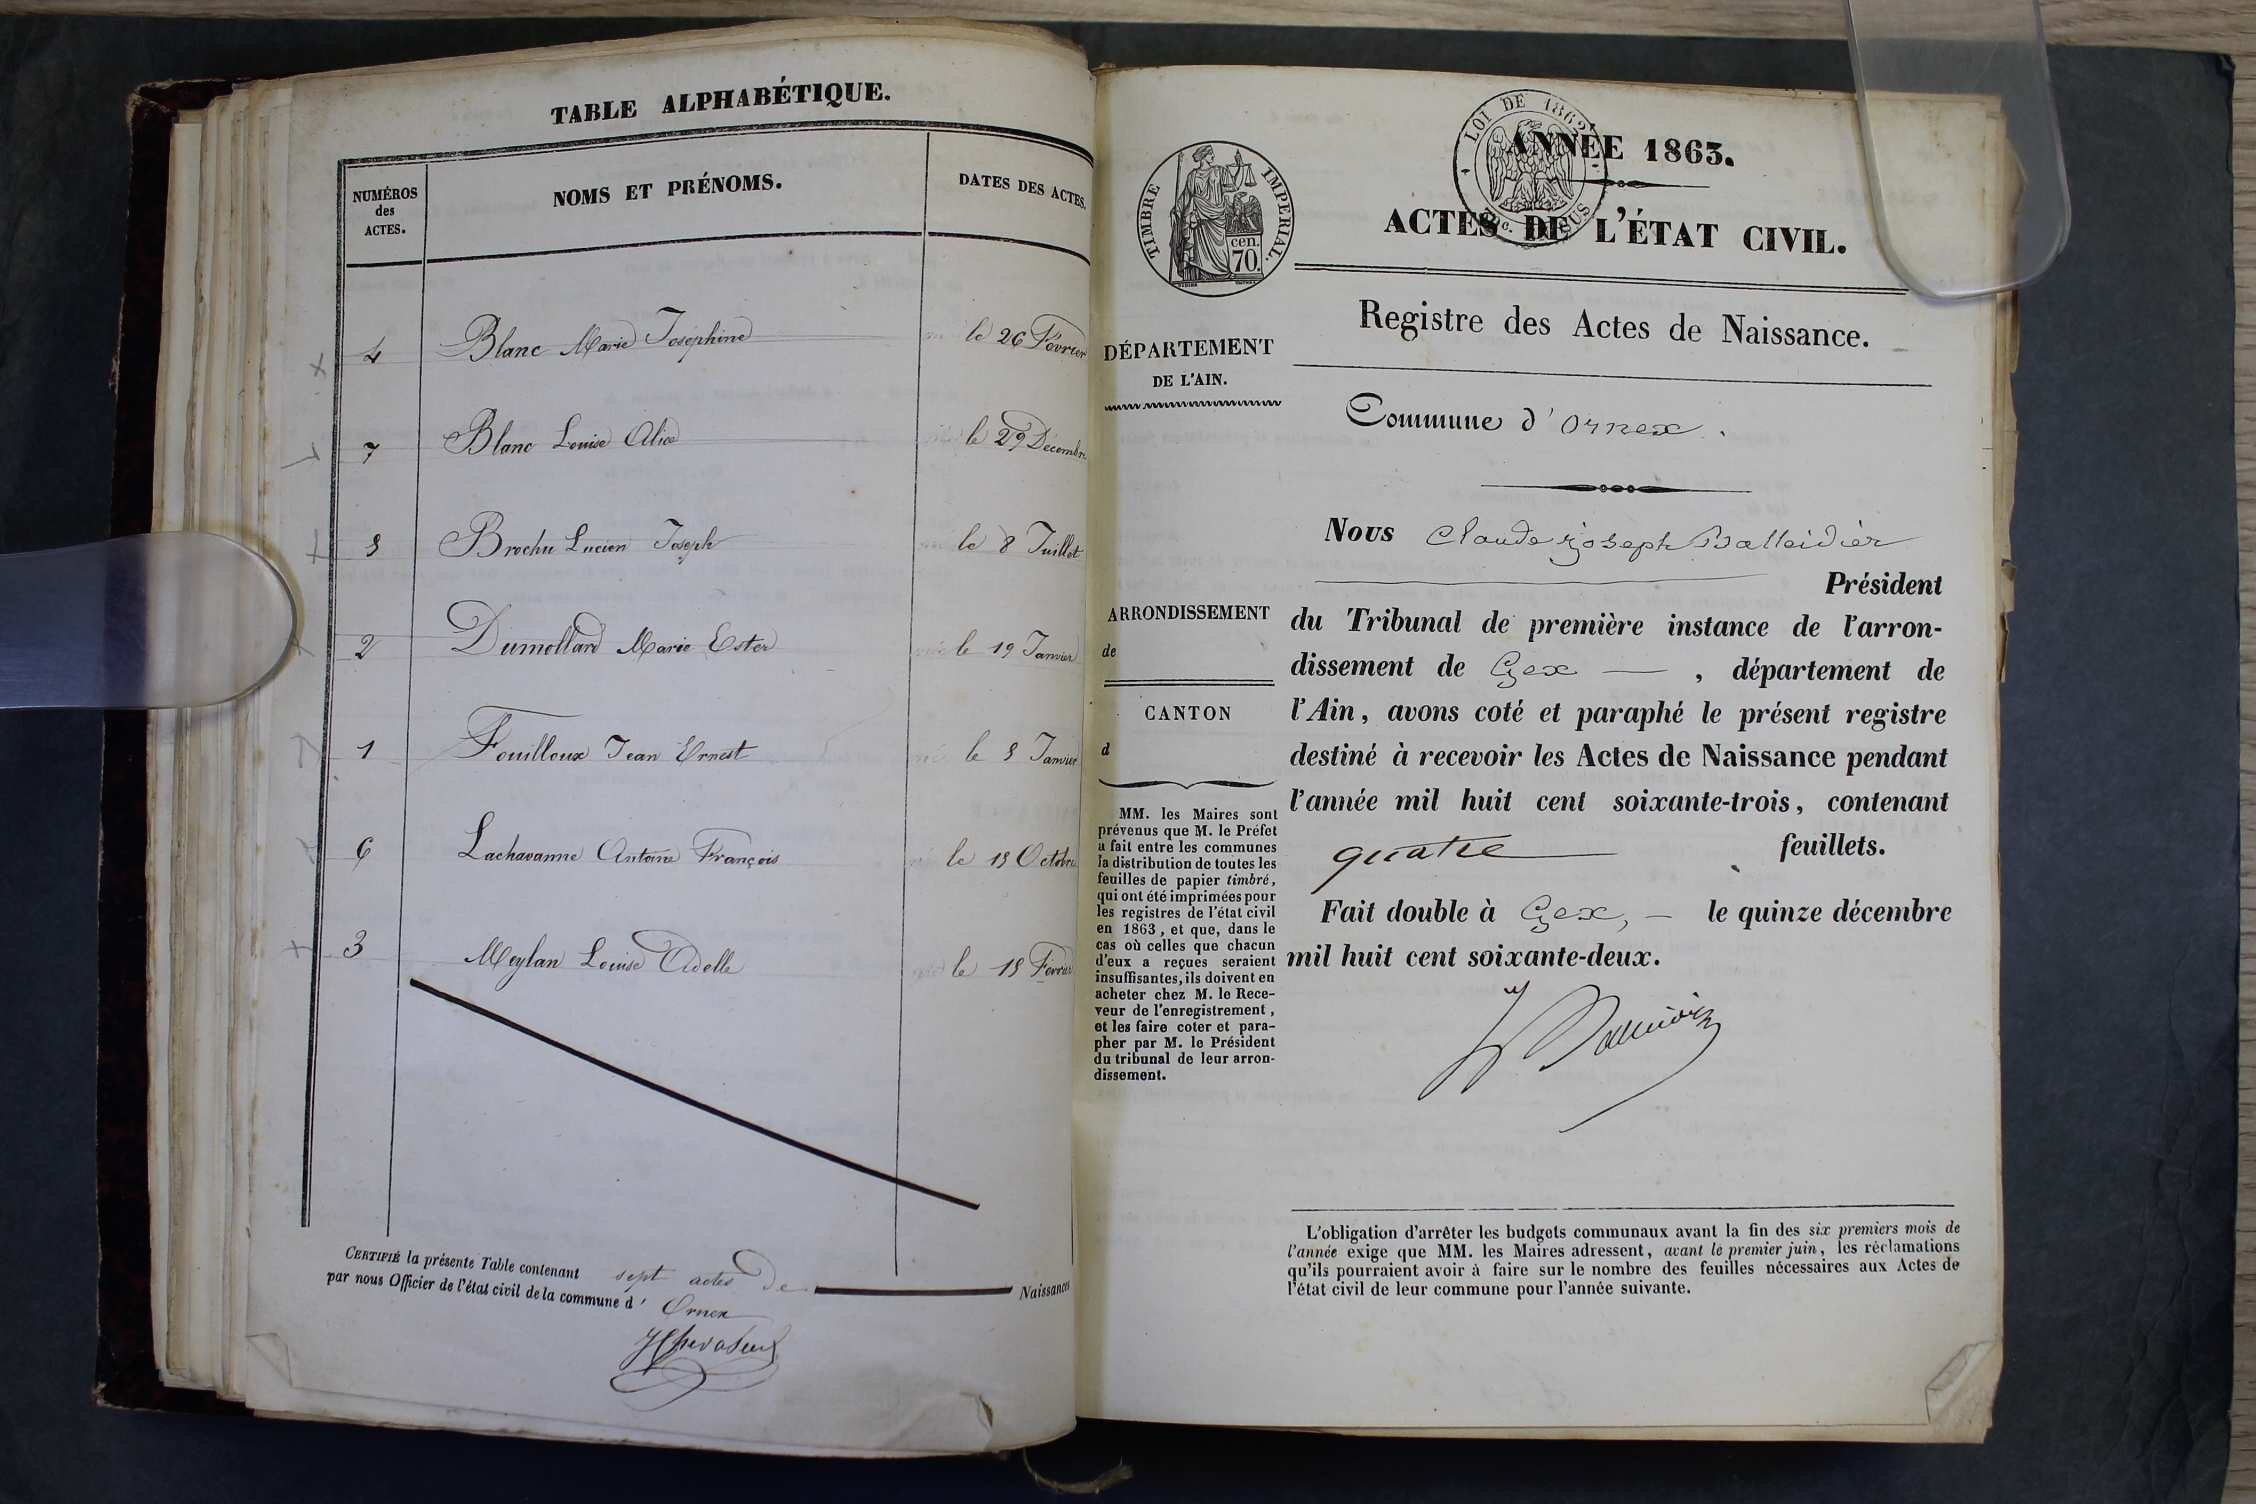 TABLE ALPHABÉTIQUE.
NUMÉROS
des
ACTES.
NOMS ET PRÉNOMS.
DATES DES ACTES.
4 Blanc Marie Joséphine le 26 Février
7 Blanc Louise Alice le 29 Décembre
5 Brochu Lucien Joseph le 8 Juillet
2 Dumollard Marie Ester née le 19 Janvier
1 Fouilloux Jean Ernest né le 8 Janvier
6 Lachavanne Antoine François né le 15 Octobre
3 Meylan Louise Adelle le 15 Février
CERTIFIÉ la présente Table contenant sept actes de Naissances
par nous Officier de l'état civil de la commune d' Ornex
TIMBRE IMPERIAL.
cen.
70.
LOI DE 1862
ANNÉE 1863.
ACTES DE L'ÉTAT CIVIL.
Registre des Actes de Naissance.
DÉPARTEMENT
DE L'AIN.
Commune d'Ornex.
ARRONDISSEMENT
de
CANTON
d
MM. les Maires sont
prévenus que M. le Préfet
a fait entre les communes
la distribution de toutes les
feuilles de papier timbré,
qui ont été imprimées pour
les registres de l'état civil
en 1863, et que, dans le
cas où celles que chacun
d'eux a reçues seraient
insuffisantes, ils doivent en
acheter chez M. le Rece-
veur de l'enregistrement,
et les faire coter et para-
pher par M. le Président
du tribunal de leur arron-
dissement.
Nous Claude Joseph Balleidier
Président
du Tribunal de première instance de l'arron-
dissement de Gex — , département de
l'Ain, avons coté et paraphé le présent registre
destiné à recevoir les Actes de Naissance pendant
l'année mil huit cent soixante-trois, contenant
quatre feuillets.
Fait double à Gex, — le quinze décembre
mil huit cent soixante-deux.
L'obligation d'arrêter les budgets communaux avant la fin des six premiers mois de
l'année exige que MM. les Maires adressent, avant le premier juin, les réclamations
qu'ils pourraient avoir à faire sur le nombre des feuilles nécessaires aux Actes de
l'état civil de leur commune pour l'année suivante.